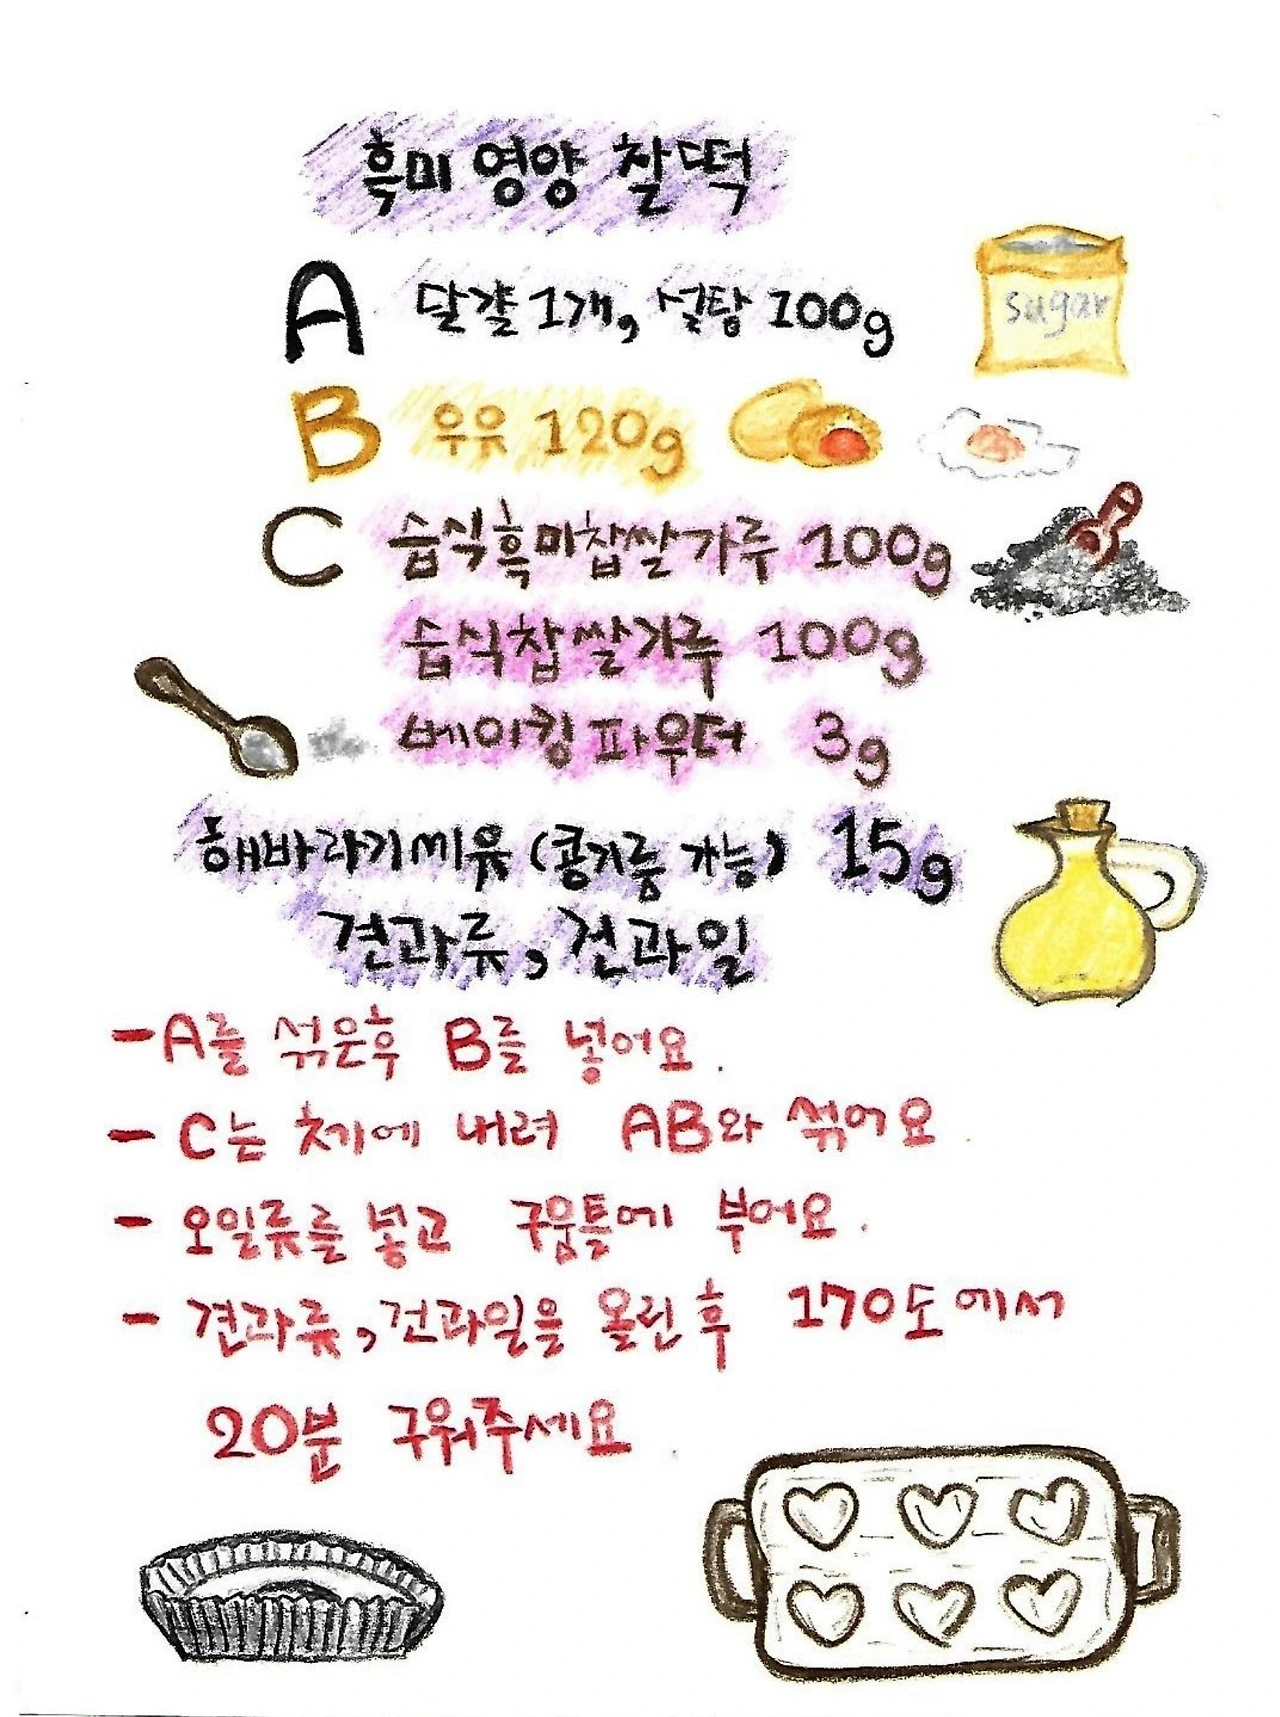 흑미 영양 찰떡
A 달걀 1개, 설탕 100g
sugar
B 우유 120g
C 습식흑미찹쌀가루 100g
습식찹쌀가루 100g
베이킹파우더 3g
해바라기씨유 (콩기름 가능) 15g
견과류, 건과일
- A를 섞은후 B를 넣어요.
- C는 체에 내려 AB와 섞어요.
- 오일류를 넣고 구움틀에 부어요.
- 견과류, 건과일을 올린 후 170도에서
20분 구워주세요.